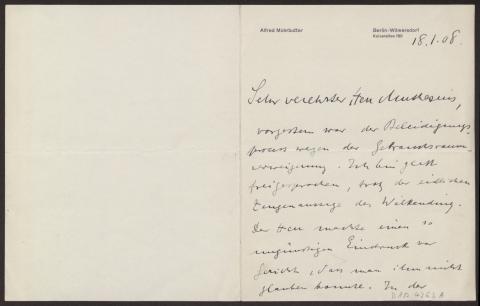 Alfred Mohrbutter
Berlin-Wilmersdorf
Kaiserallee
18.1.08.
Sehr verehrter Herr Muthesius,
vorgestern war der Beleidigungs-
prozess wegen der
Ich bin glatt
freigesprochen, trotz der eidlichen
Zeugenaussage des Wilkending.
Der Herr machte einen so
ungünstigen Eindruck vor
Gericht, dass man ihm nicht
glauben konnte. In der